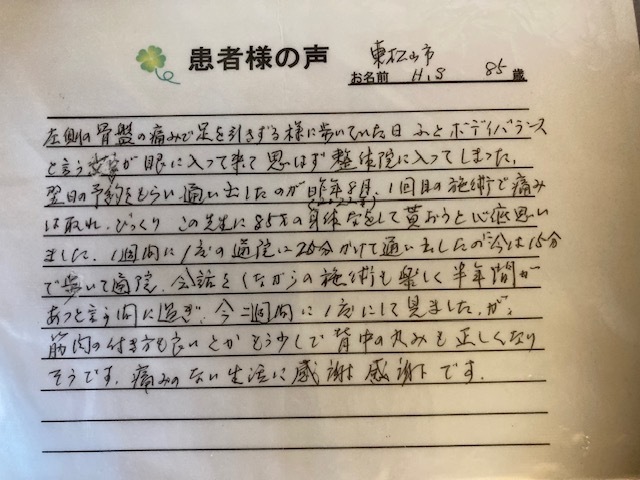 患者様の声
東松山市
お名前 H.S 85歳
左側の骨盤の痛みで足を引きずる様に歩いていた日 ふとボディバランス
と言う文字が眼に入って来て思はず整体院に入ってしまった。
翌日の予約をもらい通い出したのが昨年8月、1回目の施術で痛み
は取れ、びっくり この先生に85才の身体なをして貰おうと心底思い
ました。1週間に1度の通院に25分かけて通い出したのに今は15分
で歩いて通院、会話をしながらの施術も楽しく半年間が
あっと言う間に過ぎ、今二週間に1度にして見ましたが、
筋肉の付き方も良いとか もう少しで背中の丸みも正しくなり
そうです。痛みのない生活に感謝 感謝です。